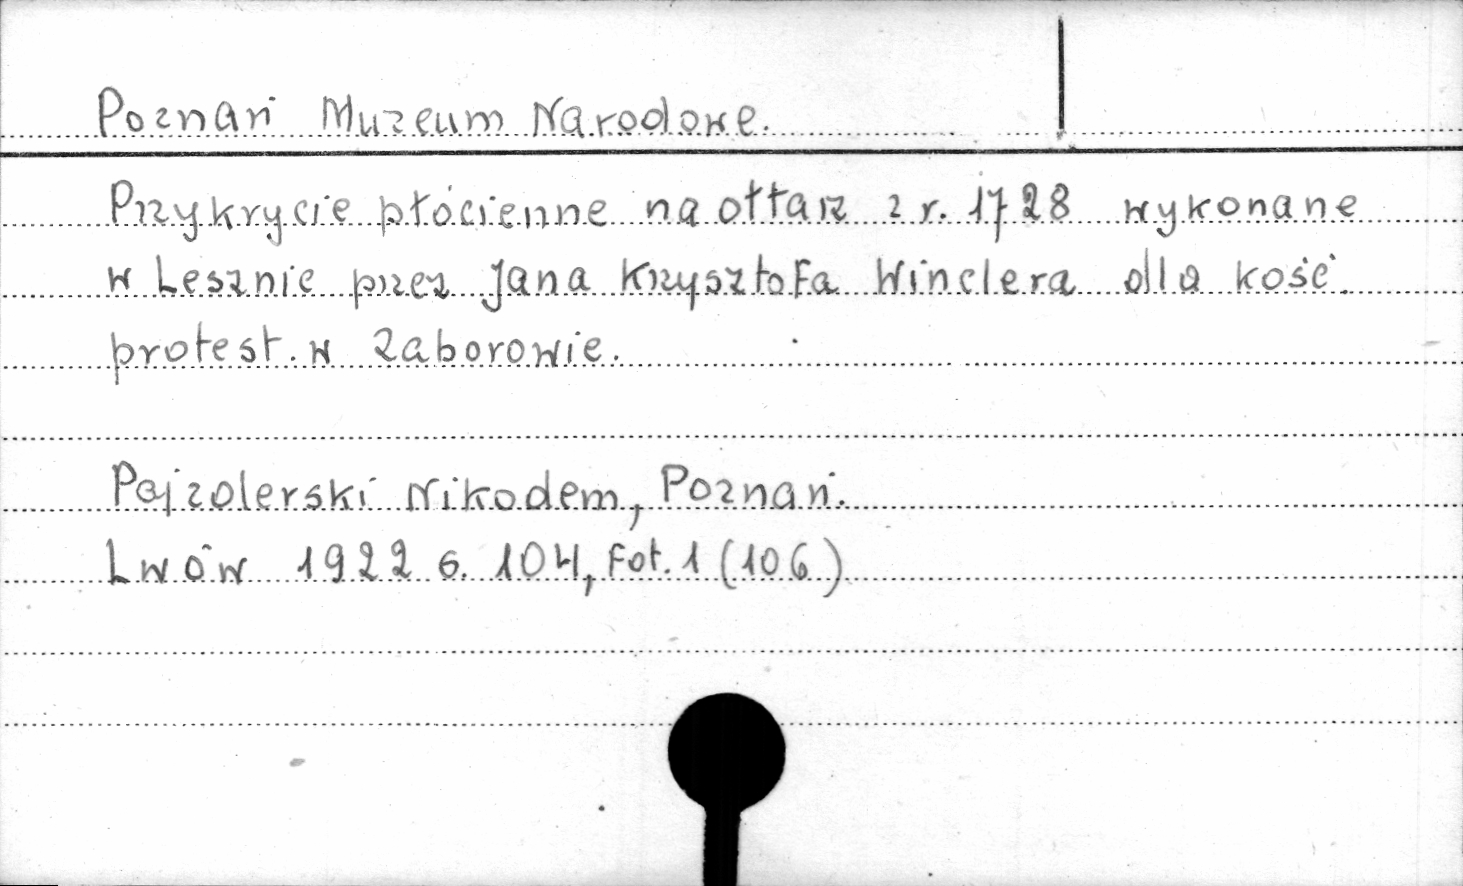 Poznań Muzeum Narodowe.
Przykrycie płócienne na ołtarz z r. 1728 wykonane
w Lesznie przez Jana Krzysztofa Winclera dla kość.
protest. w Zaborowie.
Pajzderski Nikodem, Poznań.
Lwów 1922 s. 104, fot. 1 (106)